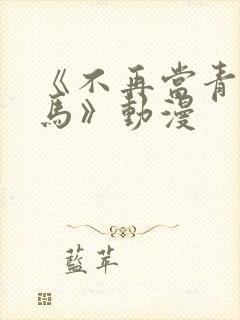 《不再當青
馬》動漫
藍苹